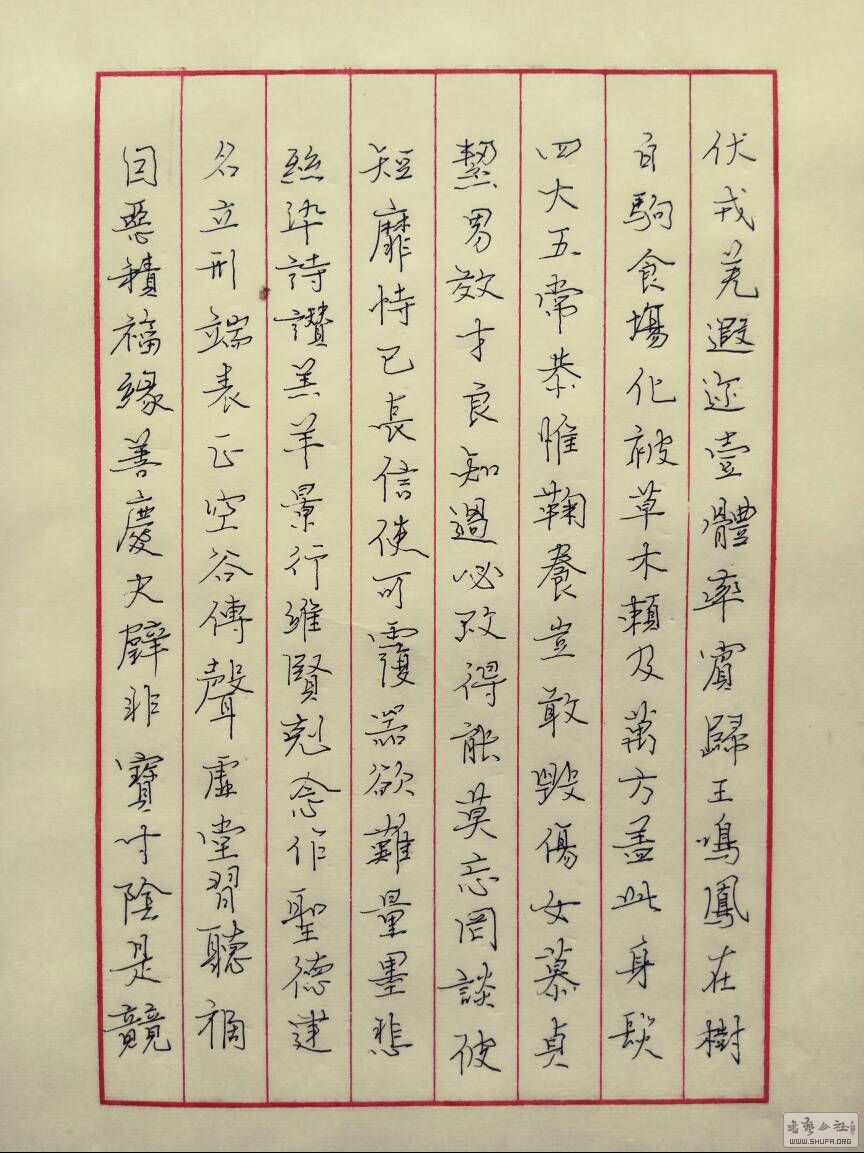 伏戎羌遐迩壹體率賓歸王鳴鳳在樹
白駒食場化被草木賴及萬方蓋此身髮
四大五常恭惟鞠養豈敢毀傷女慕貞
絜男效才良知過必改得能莫忘罔談彼
短靡恃己長信使可覆器欲難量墨悲
絲染詩讚羔羊景行維賢剋念作聖德建
名立形端表正空谷傳聲虛堂習聽禍
因惡積福緣善慶尺璧非寶寸陰是競
WWW.SHUFA.ORG